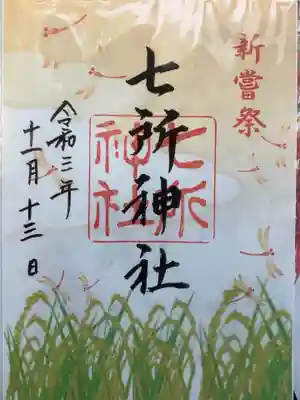 新嘗祭
七所神社
七所
神社
令和三年
十一月十三日